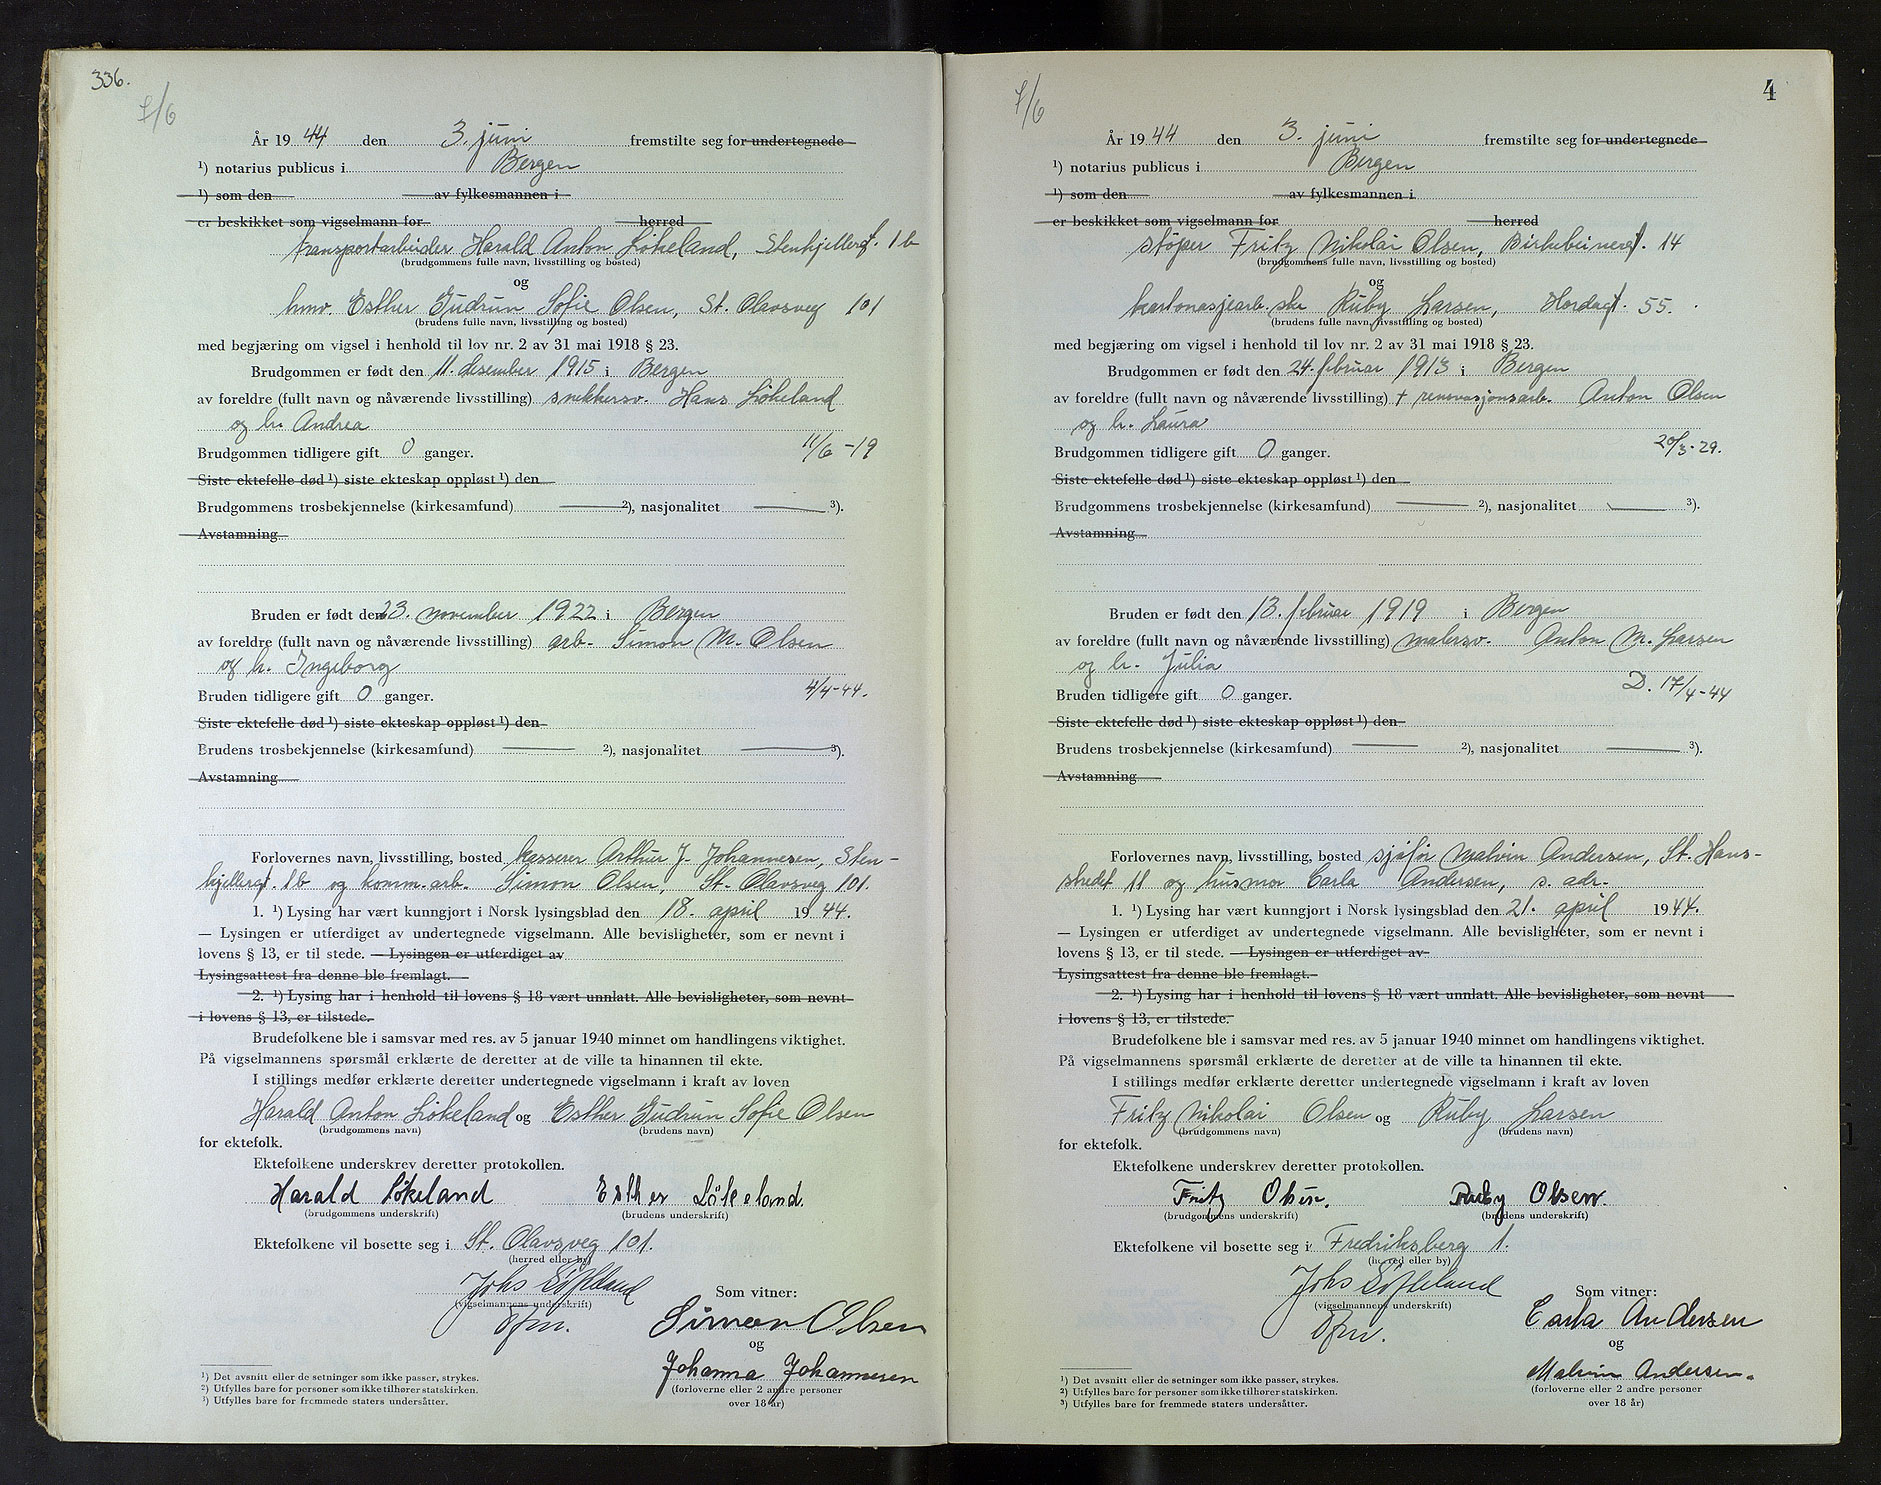 336.
7/6
År 1944 den 3. juni fremstilte seg for undertegnede
¹) notarius publicus i Bergen
¹) som den av fylkesmannen i
er beskikket som vigselmann for herred
transportarbeider Harald Anton Løkeland, Stenkjellergt. 1b
(brudgommens fulle navn, livsstilling og bosted)
og
hmv. Esther Gudrun Sofie Olsen, St. Olavsveg 101
(brudens fulle navn, livsstilling og bosted)
med begjæring om vigsel i henhold til lov nr. 2 av 31 mai 1918 § 23.
Brudgommen er født den 11. desember 1915 i Bergen
av foreldre (fullt navn og nåværende livsstilling) snekkersv. Hans Løkeland
og h. Andrea
Brudgommen tidligere gift 0 ganger. 11/6-19
Siste ektefelle død ¹) siste ekteskap oppløst ¹) den
Brudgommens trosbekjennelse (kirkesamfund) — ²), nasjonalitet — ³).
Avstamning
Bruden er født den 23. november 1922 i Bergen
av foreldre (fullt navn og nåværende livsstilling) arb. Simon M. Olsen
og h. Ingeborg
Bruden tidligere gift 0 ganger. 4/4-44.
Siste ektefelle død ¹) siste ekteskap oppløst ¹) den
Brudens trosbekjennelse (kirkesamfund) — ²), nasjonalitet — ³).
Avstamning
Forlovernes navn, livsstilling, bosted kasserer Arthur J. Johannesen, Sten-
kjellergt. 1b og komm.arb. Simon Olsen, St. Olavsveg 101.
1. ¹) Lysing har vært kunngjort i Norsk lysingsblad den 18. april 1944.
— Lysingen er utferdiget av undertegnede vigselmann. Alle bevisligheter, som er nevnt i
lovens § 13, er til stede. — Lysingen er utferdiget av
Lysingsattest fra denne ble fremlagt. —
2. ¹) Lysing har i henhold til lovens § 18 vært unnlatt. Alle bevisligheter, som nevnt
i lovens § 13, er tilstede.
Brudefolkene ble i samsvar med res. av 5 januar 1940 minnet om handlingens viktighet.
På vigselmannens spørsmål erklærte de deretter at de ville ta hinannen til ekte.
I stillings medfør erklærte deretter undertegnede vigselmann i kraft av loven
Harald Anton Løkeland og Esther Gudrun Sofie Olsen
(brudgommens navn) (brudens navn)
for ektefolk.
Ektefolkene underskrev deretter protokollen.
Harald Løkeland Esther Løkeland.
(brudgommens underskrift) (brudens underskrift)
Ektefolkene vil bosette seg i St. Olavsveg 101.
(herred eller by)
Johs Søfteland
(vigselmannens underskrift)
Som vitner:
Simon Olsen
og
Johanna Johannesen
(forloverne eller 2 andre personer
over 18 år)
¹) Det avsnitt eller de setninger som ikke passer, strykes.
²) Utfylles bare for personer som ikke tilhører statskirken.
³) Utfylles bare for fremmede staters undersåtter.
7/6
4
År 1944 den 3. juni fremstilte seg for undertegnede
¹) notarius publicus i Bergen
¹) som den av fylkesmannen i
er beskikket som vigselmann for herred
støper Fritz Nikolai Olsen, Birkebeinergt. 14
(brudgommens fulle navn, livsstilling og bosted)
og
kartonasjearb.ske Ruby Larsen, Hordagt. 55.
(brudens fulle navn, livsstilling og bosted)
med begjæring om vigsel i henhold til lov nr. 2 av 31 mai 1918 § 23.
Brudgommen er født den 24. februar 1913 i Bergen
av foreldre (fullt navn og nåværende livsstilling) + renovasjonsarb. Anton Olsen
og h. Laura
Brudgommen tidligere gift 0 ganger. 20/3-29.
Siste ektefelle død ¹) siste ekteskap oppløst ¹) den
Brudgommens trosbekjennelse (kirkesamfund) — ²), nasjonalitet — ³).
Avstamning
Bruden er født den 13. februar 1919 i Bergen
av foreldre (fullt navn og nåværende livsstilling) malersv. Anton M. Larsen
og h. Julia
Bruden tidligere gift 0 ganger. D. 17/4-44
Siste ektefelle død ¹) siste ekteskap oppløst ¹) den
Brudens trosbekjennelse (kirkesamfund) — ²), nasjonalitet — ³).
Avstamning
Forlovernes navn, livsstilling, bosted sjåfør Malvin Andersen, St. Hans-
stredet 11 og husmor Carla Andersen, s. adr.
1. ¹) Lysing har vært kunngjort i Norsk lysingsblad den 21. april 1944.
— Lysingen er utferdiget av undertegnede vigselmann. Alle bevisligheter, som er nevnt i
lovens § 13, er til stede. — Lysingen er utferdiget av
Lysingsattest fra denne ble fremlagt. —
2. ¹) Lysing har i henhold til lovens § 18 vært unnlatt. Alle bevisligheter, som nevnt
i lovens § 13, er tilstede.
Brudefolkene ble i samsvar med res. av 5 januar 1940 minnet om handlingens viktighet.
På vigselmannens spørsmål erklærte de deretter at de ville ta hinannen til ekte.
I stillings medfør erklærte deretter undertegnede vigselmann i kraft av loven
Fritz Nikolai Olsen og Ruby Larsen
(brudgommens navn) (brudens navn)
for ektefolk.
Ektefolkene underskrev deretter protokollen.
Fritz Olsen. Ruby Olsen.
(brudgommens underskrift) (brudens underskrift)
Ektefolkene vil bosette seg i Fredriksberg 1.
(herred eller by)
Johs Søfteland
(vigselmannens underskrift)
Som vitner:
Carla Andersen
og
Malvin Andersen.
(forloverne eller 2 andre personer
over 18 år)
¹) Det avsnitt eller de setninger som ikke passer, strykes.
²) Utfylles bare for personer som ikke tilhører statskirken.
³) Utfylles bare for fremmede staters undersåtter.